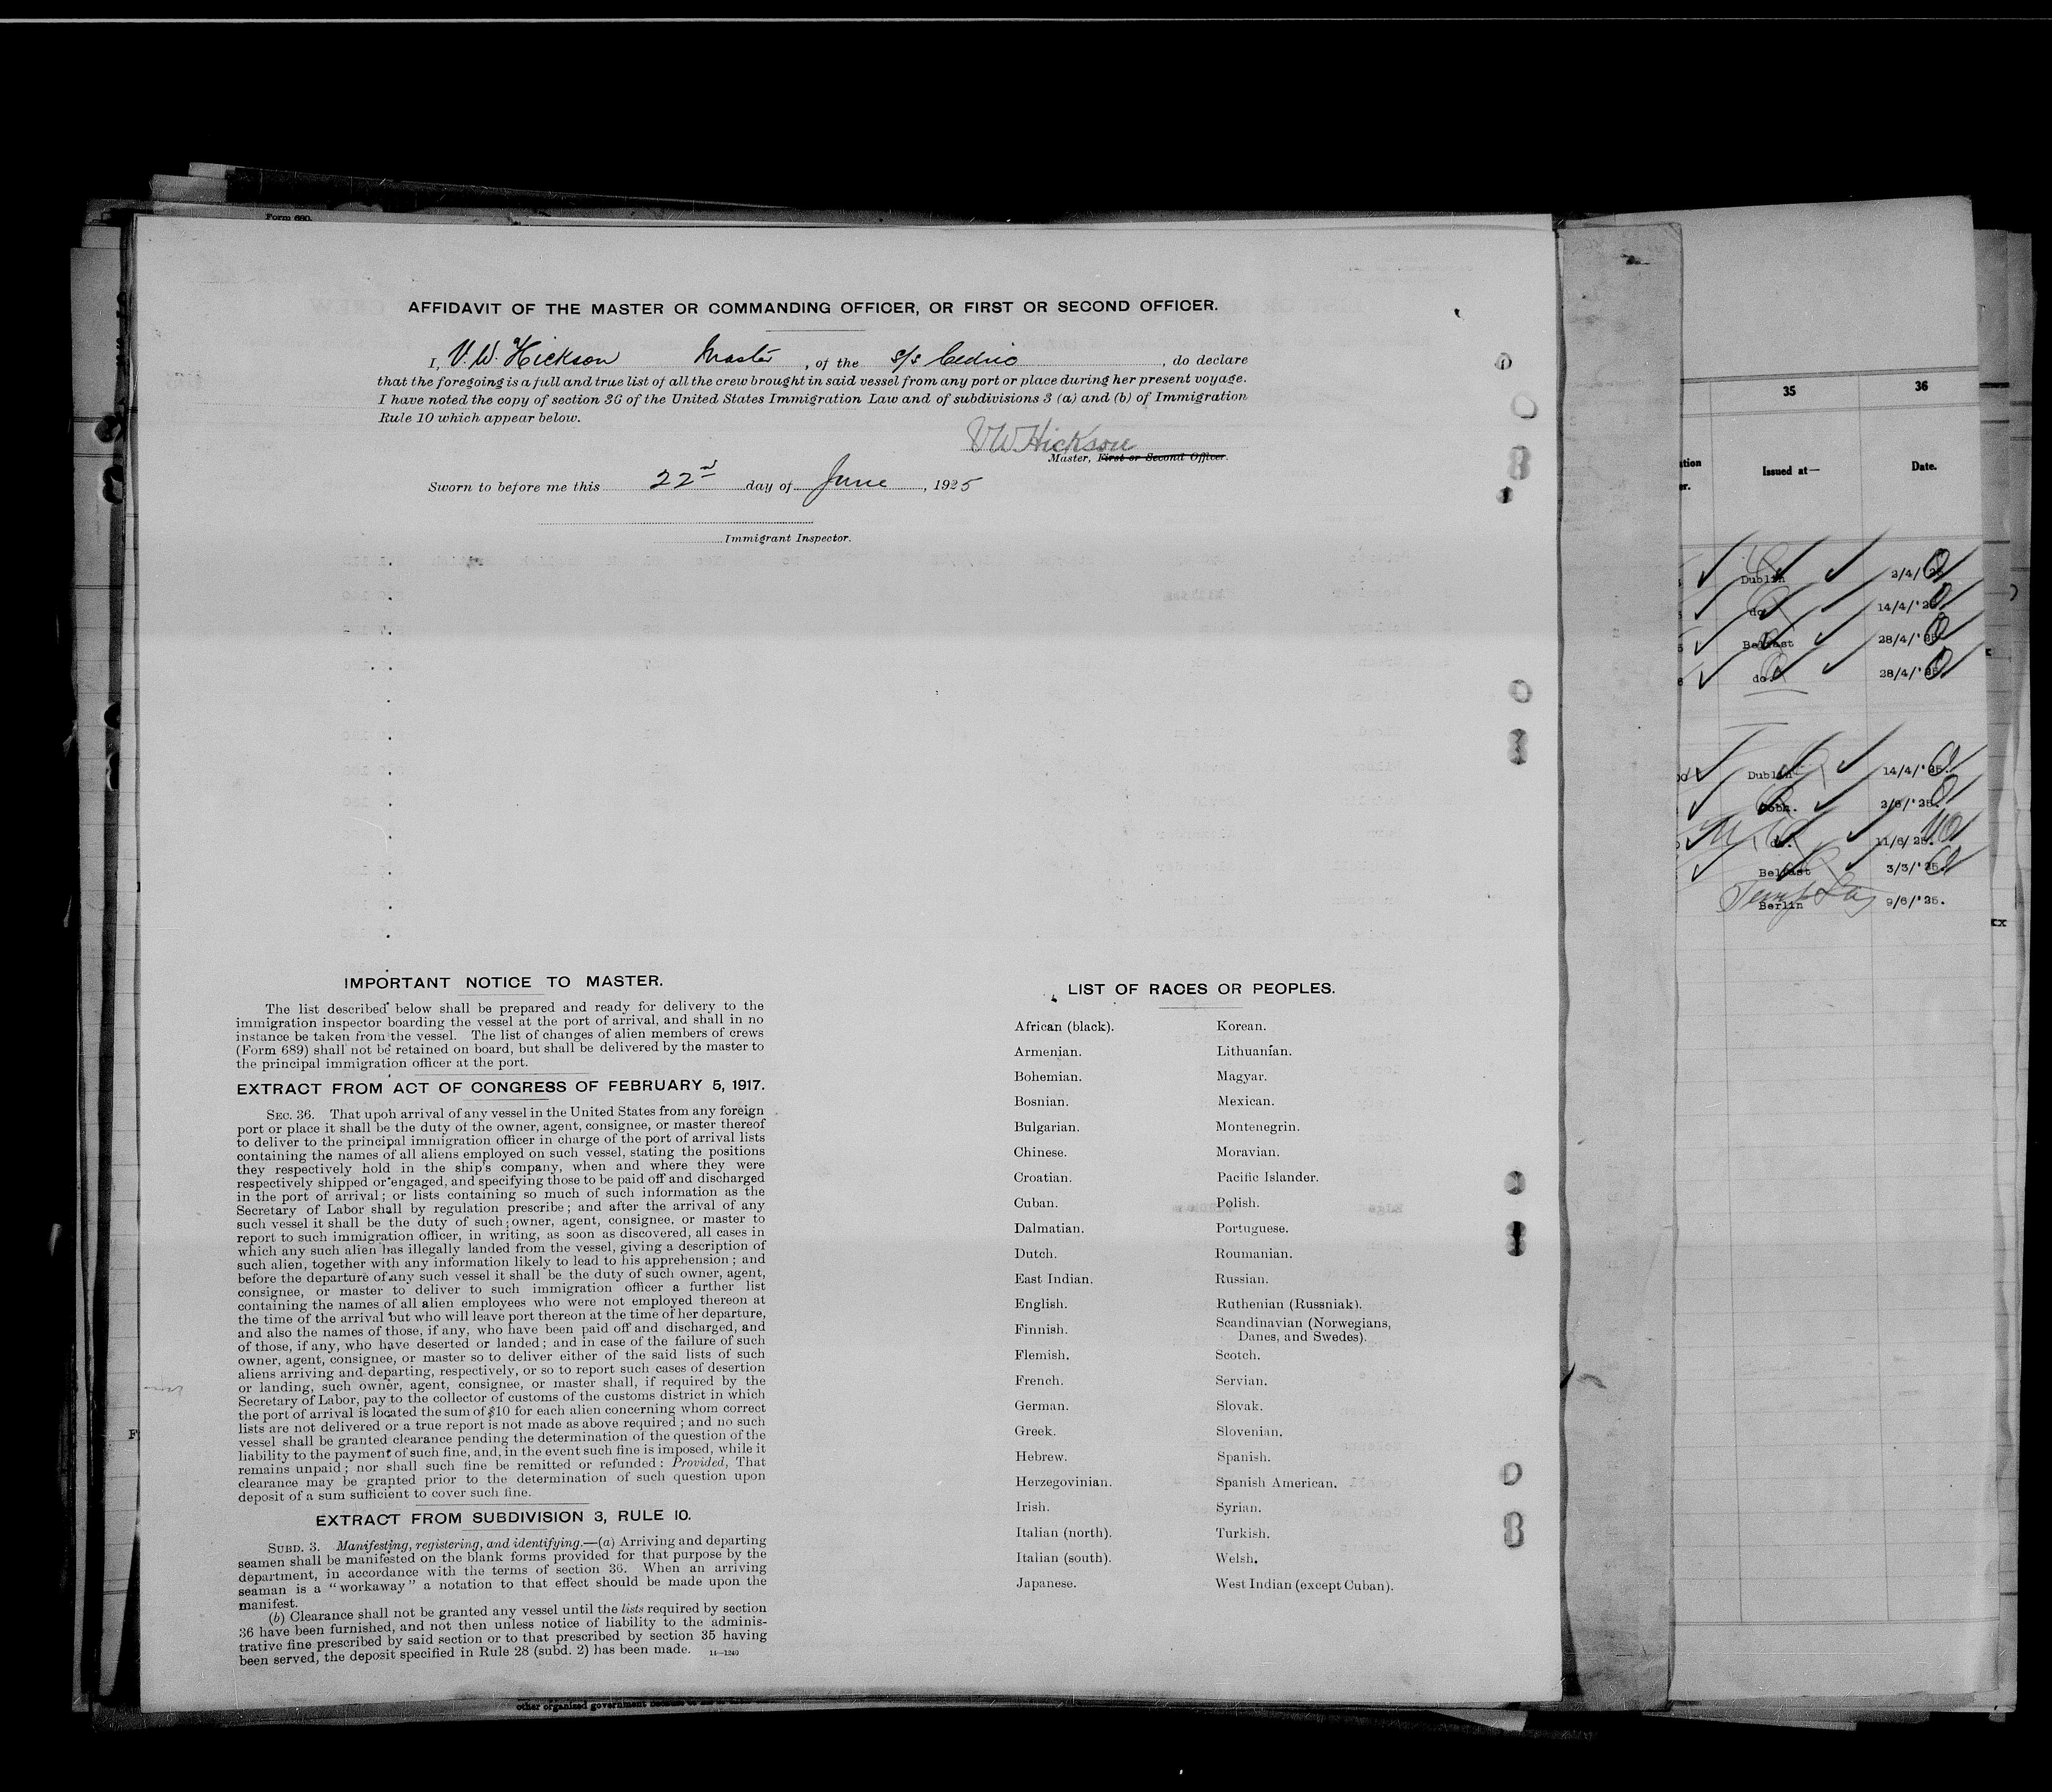 Form 680.
AFFIDAVIT OF THE MASTER OR COMMANDING OFFICER, OR FIRST OR SECOND OFFICER.
I, V. W. Hickson Master, of the s/s Cedric, do declare
that the foregoing is a full and true list of all the crew brought in said vessel from any port or place during her present voyage.
I have noted the copy of section 36 of the United States Immigration Law and of subdivisions 3 (a) and (b) of Immigration
Rule 10 which appear below.
V W Hickson
Master, First or Second Officer.
Sworn to before me this 22nd day of June, 1925
Immigrant Inspector.
IMPORTANT NOTICE TO MASTER.
The list described below shall be prepared and ready for delivery to the
immigration inspector boarding the vessel at the port of arrival, and shall in no
instance be taken from the vessel. The list of changes of alien members of crews
(Form 689) shall not be retained on board, but shall be delivered by the master to
the principal immigration officer at the port.
EXTRACT FROM ACT OF CONGRESS OF FEBRUARY 5, 1917.
SEC. 36. That upon arrival of any vessel in the United States from any foreign
port or place it shall be the duty of the owner, agent, consignee, or master thereof
to deliver to the principal immigration officer in charge of the port of arrival lists
containing the names of all aliens employed on such vessel, stating the positions
they respectively hold in the ship's company, when and where they were
respectively shipped or engaged, and specifying those to be paid off and discharged
in the port of arrival; or lists containing so much of such information as the
Secretary of Labor shall by regulation prescribe; and after the arrival of any
such vessel it shall be the duty of such owner, agent, consignee, or master to
report to such immigration officer, in writing, as soon as discovered, all cases in
which any such alien has illegally landed from the vessel, giving a description of
such alien, together with any information likely to lead to his apprehension; and
before the departure of any such vessel it shall be the duty of such owner, agent,
consignee, or master to deliver to such immigration officer a further list
containing the names of all alien employees who were not employed thereon at
the time of the arrival but who will leave port thereon at the time of her departure,
and also the names of those, if any, who have been paid off and discharged, and
of those, if any, who have deserted or landed; and in case of the failure of such
owner, agent, consignee, or master so to deliver either of the said lists of such
aliens arriving and departing, respectively, or so to report such cases of desertion
or landing, such owner, agent, consignee, or master shall, if required by the
Secretary of Labor, pay to the collector of customs of the customs district in which
the port of arrival is located the sum of $10 for each alien concerning whom correct
lists are not delivered or a true report is not made as above required; and no such
vessel shall be granted clearance pending the determination of the question of the
liability to the payment of such fine, and, in the event such fine is imposed, while it
remains unpaid; nor shall such fine be remitted or refunded: Provided, That
clearance may be granted prior to the determination of such question upon
deposit of a sum sufficient to cover such fine.
EXTRACT FROM SUBDIVISION 3, RULE 10.
SUBD. 3. Manifesting, registering, and identifying.—(a) Arriving and departing
seamen shall be manifested on the blank forms provided for that purpose by the
department, in accordance with the terms of section 36. When an arriving
seaman is a "workaway" a notation to that effect should be made upon the
manifest.
(b) Clearance shall not be granted any vessel until the lists required by section
36 have been furnished, and not then unless notice of liability to the adminis-
trative fine prescribed by said section or to that prescribed by section 35 having
been served, the deposit specified in Rule 28 (subd. 2) has been made. 14—1240
LIST OF RACES OR PEOPLES.
African (black).
Armenian.
Bohemian.
Bosnian.
Bulgarian.
Chinese.
Croatian.
Cuban.
Dalmatian.
Dutch.
East Indian.
English.
Finnish.
Flemish.
French.
German.
Greek.
Hebrew.
Herzegovinian.
Irish.
Italian (north).
Italian (south).
Japanese.
Korean.
Lithuanian.
Magyar.
Mexican.
Montenegrin.
Moravian.
Pacific Islander.
Polish.
Portuguese.
Roumanian.
Russian.
Ruthenian (Russniak).
Scandinavian (Norwegians,
Danes, and Swedes).
Scotch.
Servian.
Slovak.
Slovenian.
Spanish.
Spanish American.
Syrian.
Turkish.
Welsh.
West Indian (except Cuban).
35 36
Issued at— Date.
Dublin 2/4/
do. 14/4/'25
Belfast 28/4/'25
do. 28/4/'25
Dublin 14/4/'25.
Cobh. 2/6/'25.
11/6/25.
Belfast 3/3/'25.
Berlin 9/6/'25.
other organized government because